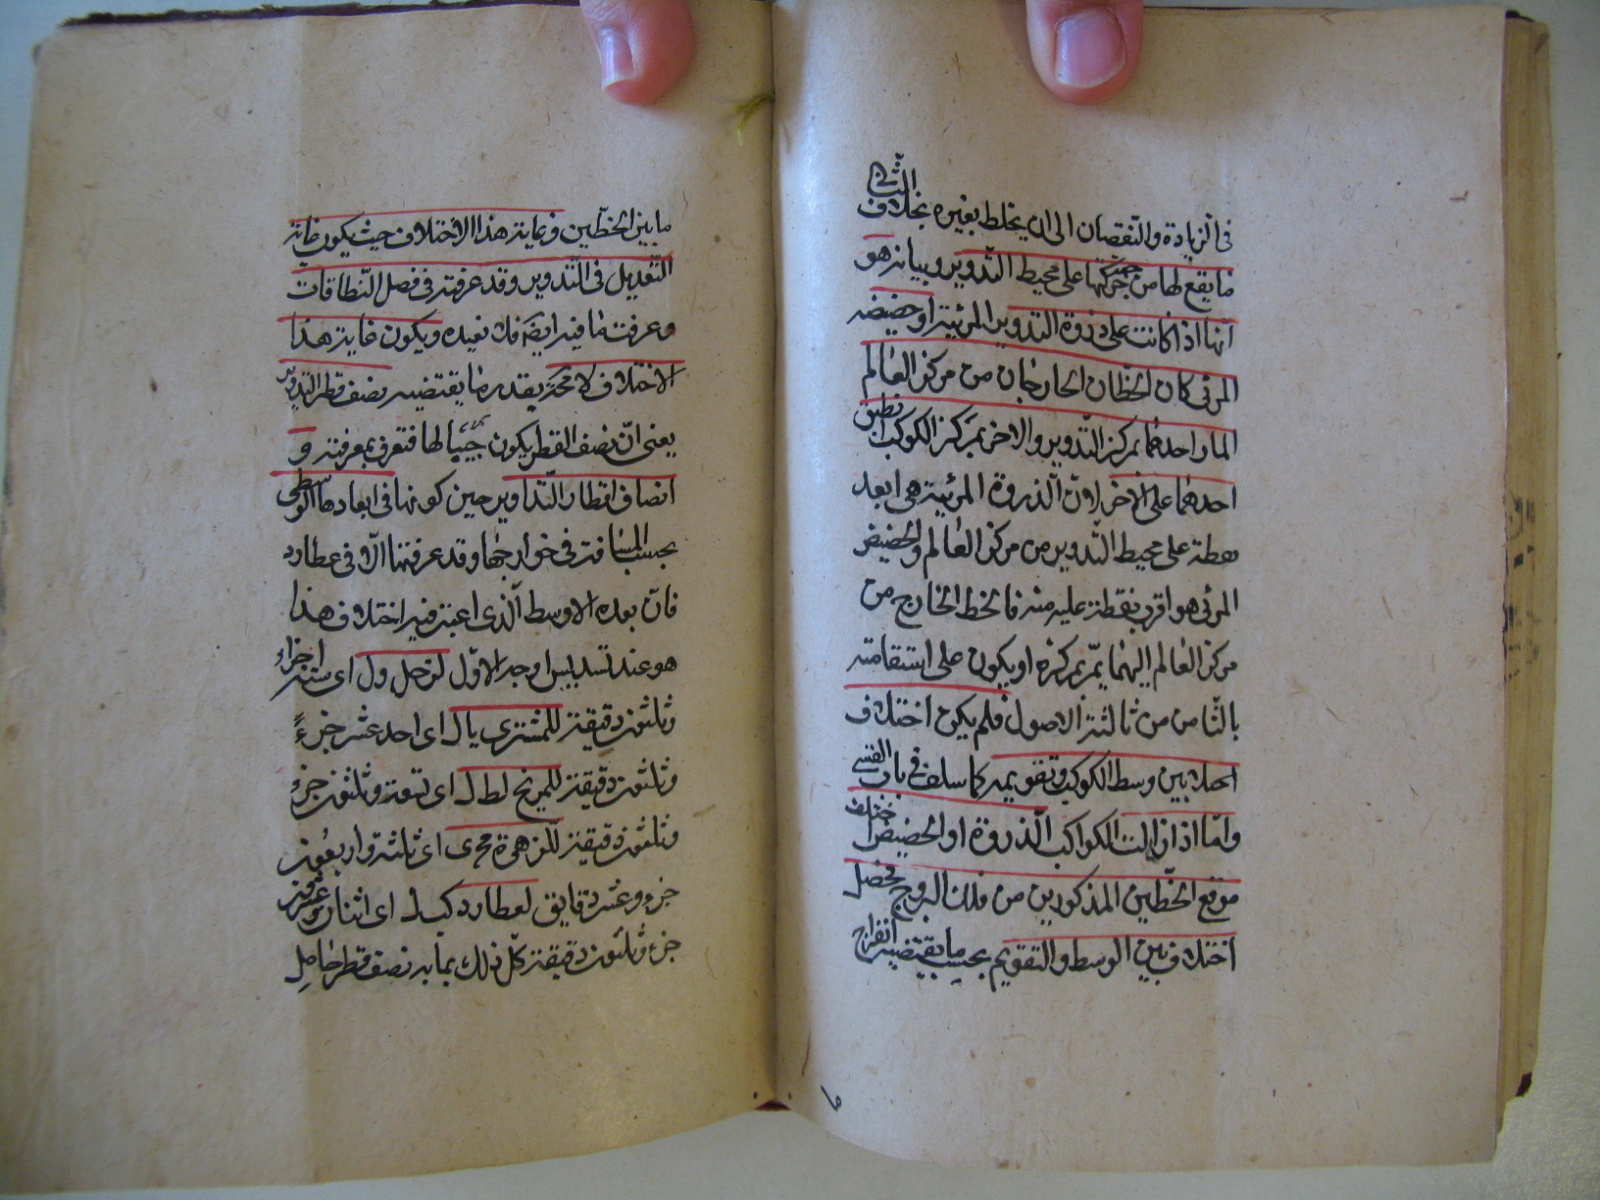 في الزيادة والنقصان الى ان يختلط بغيره بخلاف الثاني
ما يقع لها من جهة حركتها على محيط التدوير وبيانه هو
انها اذا كانت على ذروة التدوير المرئية او حضيضه
المرئي كان الخطان الخارجان من مركز العالم
المار احدهما بمركز التدوير والاخر بمركز الكوكب انطبق
احدهما على الاخر لان الذروة المرئية هي ابعد
نقطة على محيط التدوير من مركز العالم والحضيض
المرئي هو اقرب نقطة عليه منه فالخط الخارج من
مركز العالم اليهما يمر بمركزه او يكون على استقامته
بالثامن من ثالثة الاصول فلم يكن اختلاف
اصلا بين وسط الكوكب وتقويمه كما سلف في باب القسي
واما اذا زالت الكواكب الذروة او الحضيض اختلف
موقع الخطين المذكورين من فلك البروج فحصل
اختلاف بين الوسط والتقويم بحسب ما يقتضيه انفراج
ما
ما بين الخطين وغاية هذا الاختلاف حيث يكون غاية
التعديل في التدوير وقد عرفته في فصل النطاقات
وعرفت ما فيه ايضا فلا نعيده ويكون غاية هذا
الاختلاف لا محة بقدر ما يقتضيه نصف قطر التدوير
يعنى ان نصف القطر يكون جيبا لها فتعرف بمعرفته و
انصاف اقطار التداوير حين كونها في ابعادها الوسطى
بحسب المسافة في خوارجها وقد عرفتها الا في عطارد
فان بعده الاوسط الذي اعتبر فيه اختلاف هذا
هو عند تسديس اوجه الاول لزحل ول اى ستة اجزاء
وثلثون دقيقة للمشتري يال اى احد عشر جزءً
وثلثون دقيقة للمريخ لطل اى تسعة وثلثون جزء
وثلثون دقيقة للزهرة مجى اى ثلثة واربعون
جزء وعشر دقايق لعطارد كبل اى اثنان وعشرون
جزء وثلثون دقيقة كل ذلك بما به نصف قطر حامل